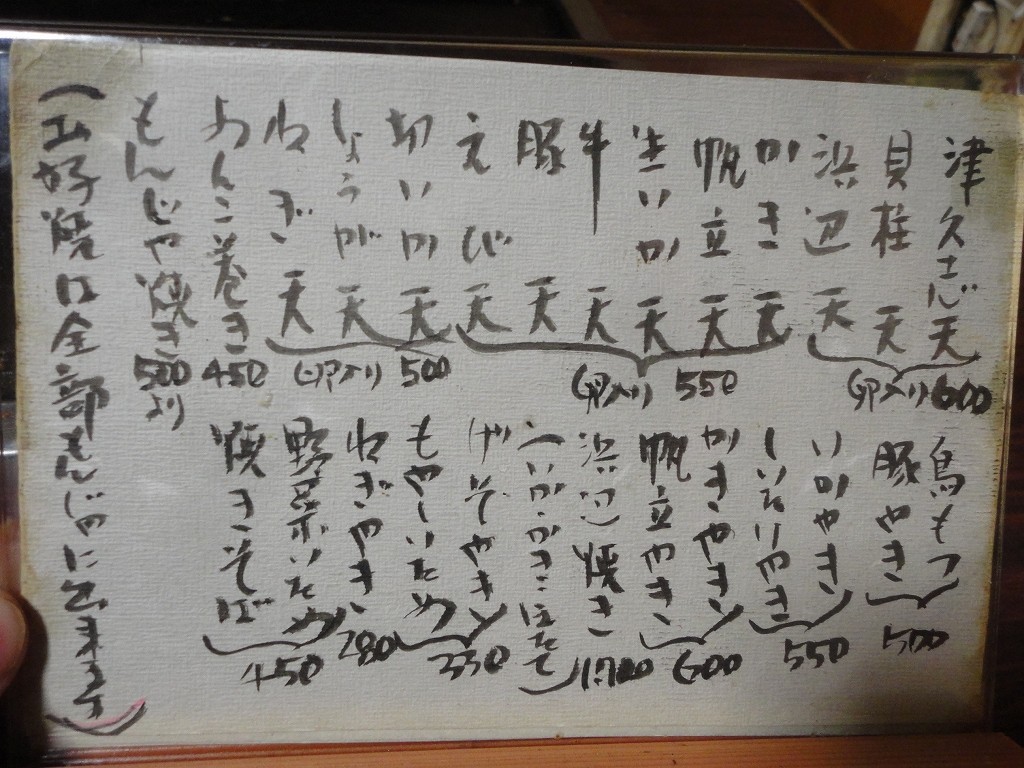 天
貝柱天
浜辺天
卵入り 600
かき天
帆立天
生いか天
牛天
豚天
えび天
卵入り 550
切いか天
しょうが天
ねぎ天
卵入り 500
あんこ巻き 450
もんじゃ焼き 500より
鳥もつ
豚やき
500
いかやき
しいたけやき
550
かきやき
帆立やき
600
浜辺焼き 1700
(いか・かき・ほたて)
げそやき
もやしいため
350
ねぎやき 280
野菜いため
焼きそば
450
(お好焼は全部もんじゃに出来ます)